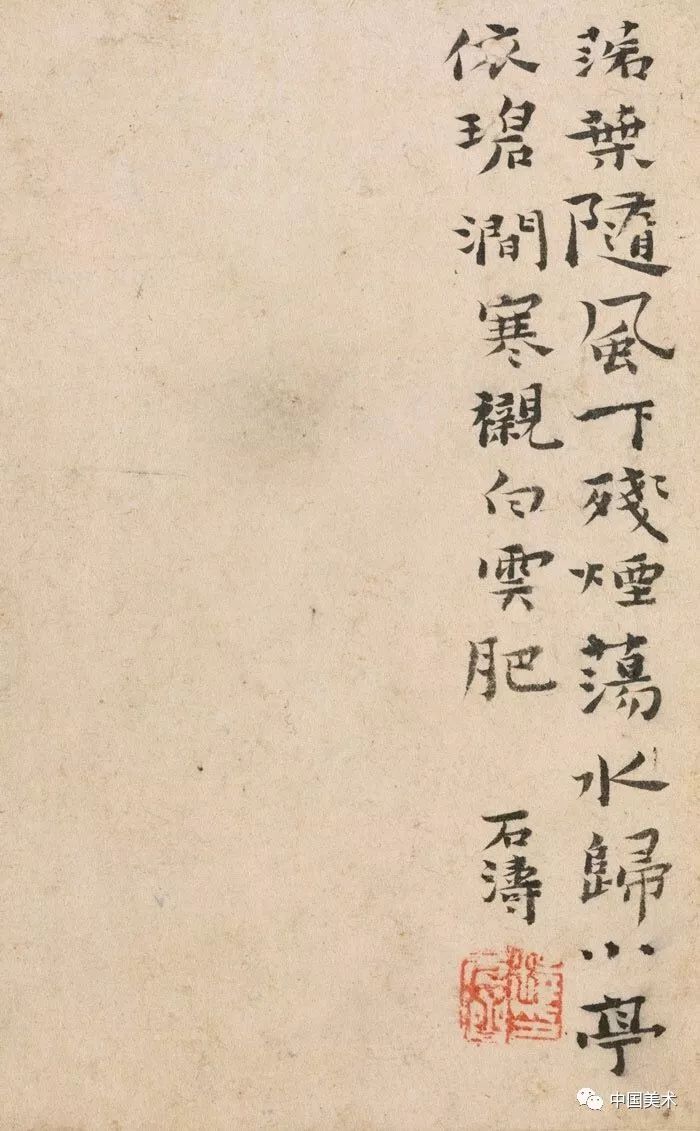 落葉隨風下殘煙蕩水歸小亭
依碧澗寒襯白雲肥
石濤
中国美术